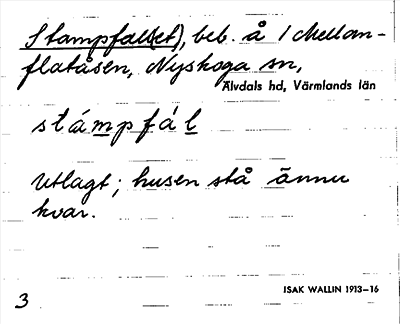 Stampfallet), beb. å 1 Mellan-
flatåsen, Nyskoga sn,
Älvdals hd, Värmlands län
stámpfál
Utlagt; husen stå ännu
kvar.
ISAK WALLIN 1913–16
3